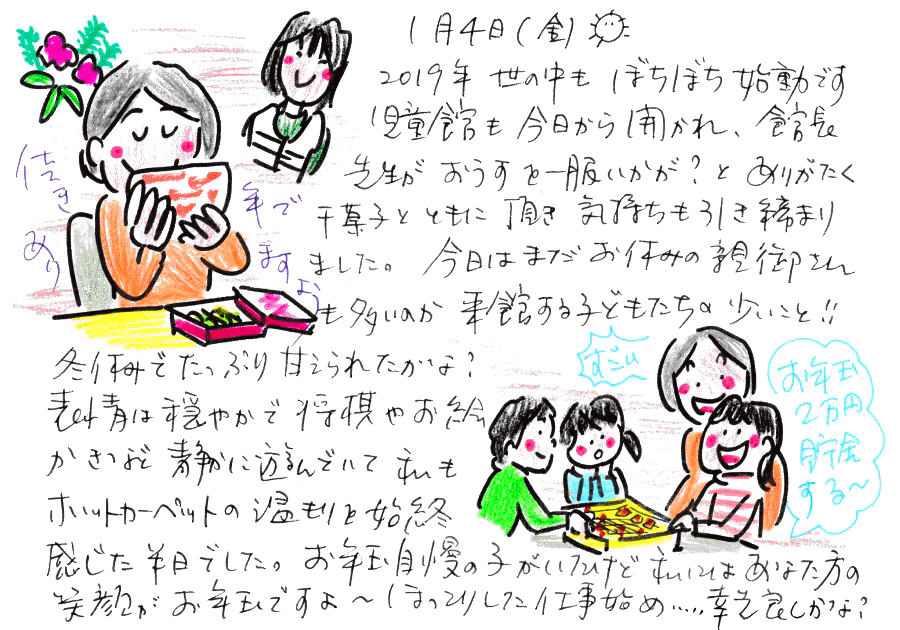 1月4日(金)
2019年 世の中も ぼちぼち 始動です
児童館も 今日から 開かれ、館長
先生が おうすを一服いかが?と ありがたく
干菓子とともに 頂き 気持ちも引き締まり
ました。今日はまだお休みの親御さん
も多いのか 来館する子どもたちの 少いこと!!
冬休みでたっぷり甘えられたかな?
表情は穏やかで 将棋やお絵
かきなど 静かに遊んでいて 私も
ホットカーペットの温もりを始終
感じた半日でした。お年玉自慢の子がいたけど 私にはあなた方の
笑顔が お年玉ですよ〜 ほっこりした仕事始め.....幸先良しかな?
佳き
年で
あり
ますよう
すごい
お年玉
2万円
貯金
する〜